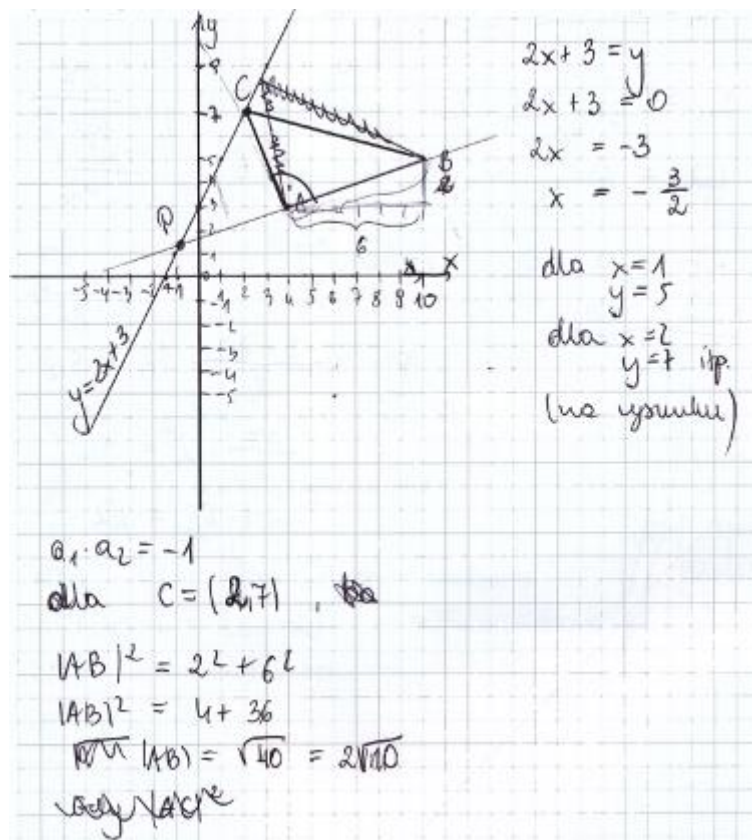 y
9
C
7
5
B
2
4
3
A
P
2
6
1
x
-5 -4 -3 -2 -1 1 2 3 4 5 6 7 8 9 10
-1
-2
-3
-4
-5
y=2x+3
2x+3 = y
2x+3 = 0
2x = -3
x = - 3/2
dla x=1
y=5
dla x=2
y=7 itp.
(na rysunku)
a₁·a₂ = -1
dla C=(2,7),
|AB|² = 2² + 6²
|AB|² = 4 + 36
|AB| = √40 = 2√10